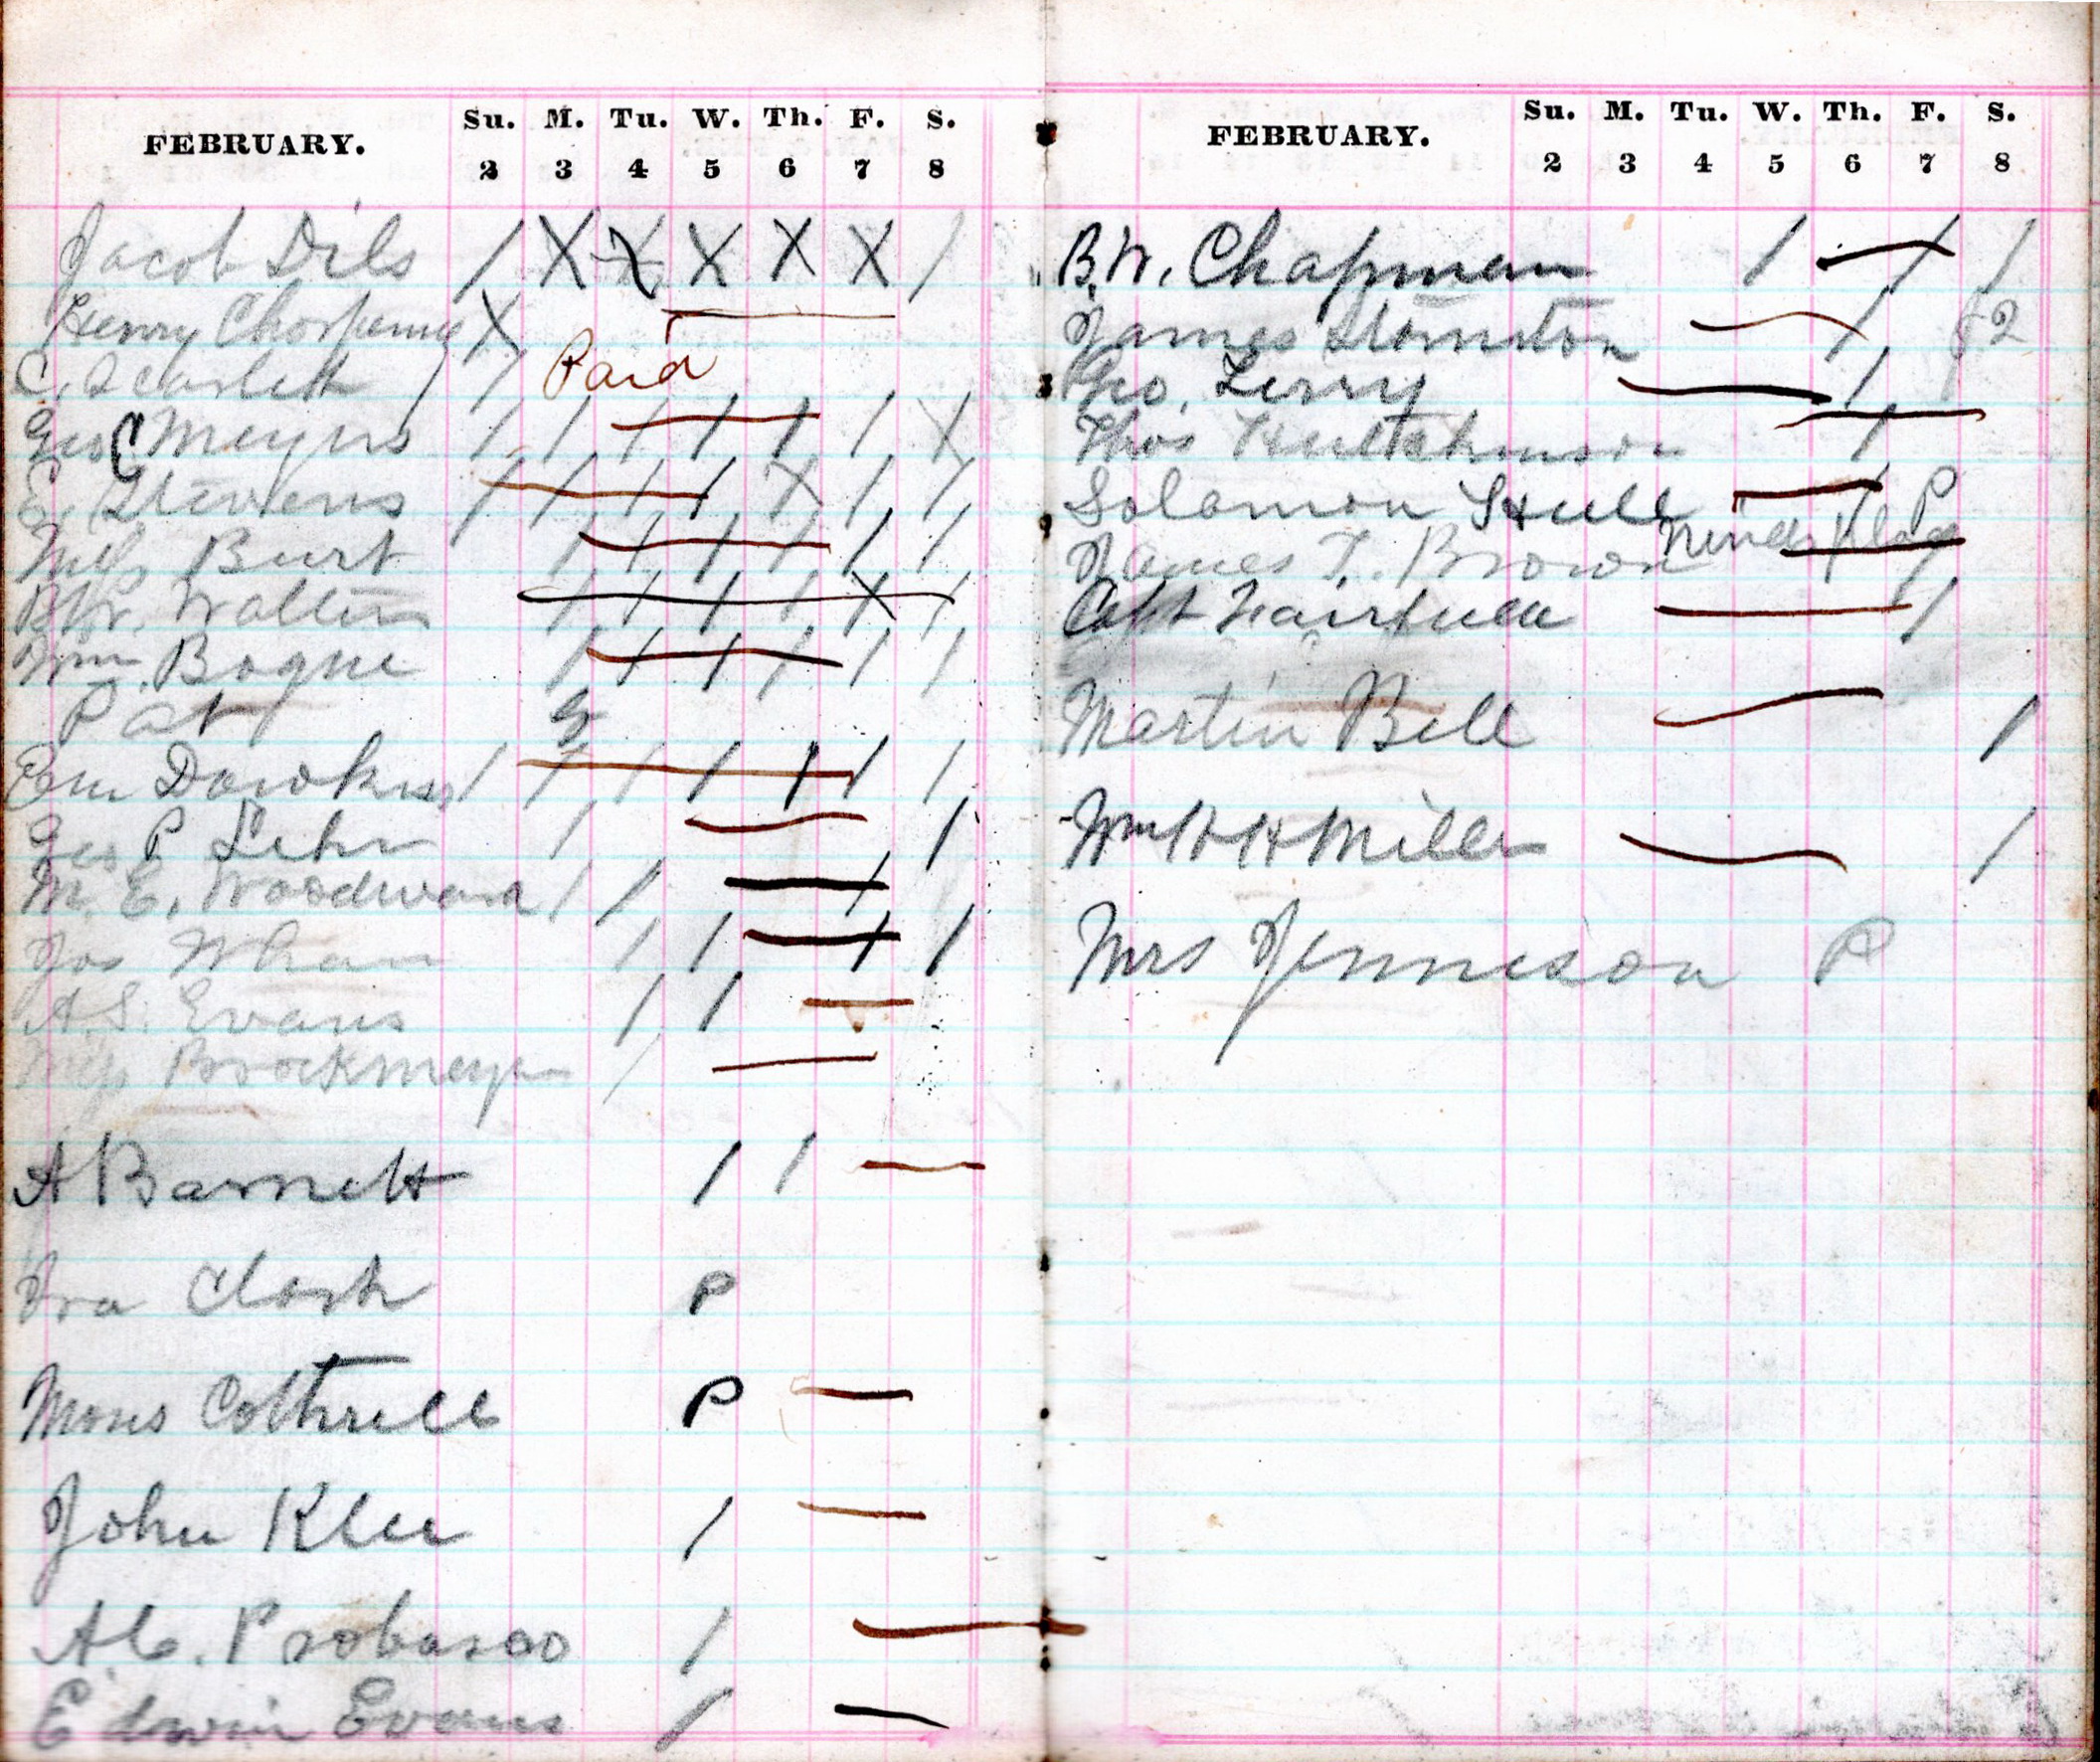 FEBRUARY. Su. M. Tu. W. Th. F. S.
2 3 4 5 6 7 8
Jacob Dils / X X X X X /
Henry Chorpening X
C. Scarlett / / Paid
Geo C Meyers / / / / / / X
E. Stevens / / / / X / /
Miss Burt / / / / / /
B.W. Walters / / / / X /
Wm. Bogue / / / / / /
Pat
Dawkins / / / / / / /
Geo P Lehr / /
M. E. Woodward / / /
Jos Whan / / / /
A. S. Evans / /
Miss Brockmeyer /
A Barnett / /
Ira Clark P
Moses Cottrell P
John Klee /
A. C. Probasco /
Edwin Evans /
FEBRUARY. Su. M. Tu. W. Th. F. S.
2 3 4 5 6 7 8
B.W. Chapman / / /
James Stornton / 2
Geo. Terry /
Thos Hutchinson /
Solomon Hull / P
James T. Brown
Capt /
Martin Bell /
Wm H H Miller /
Mrs Jenneson P